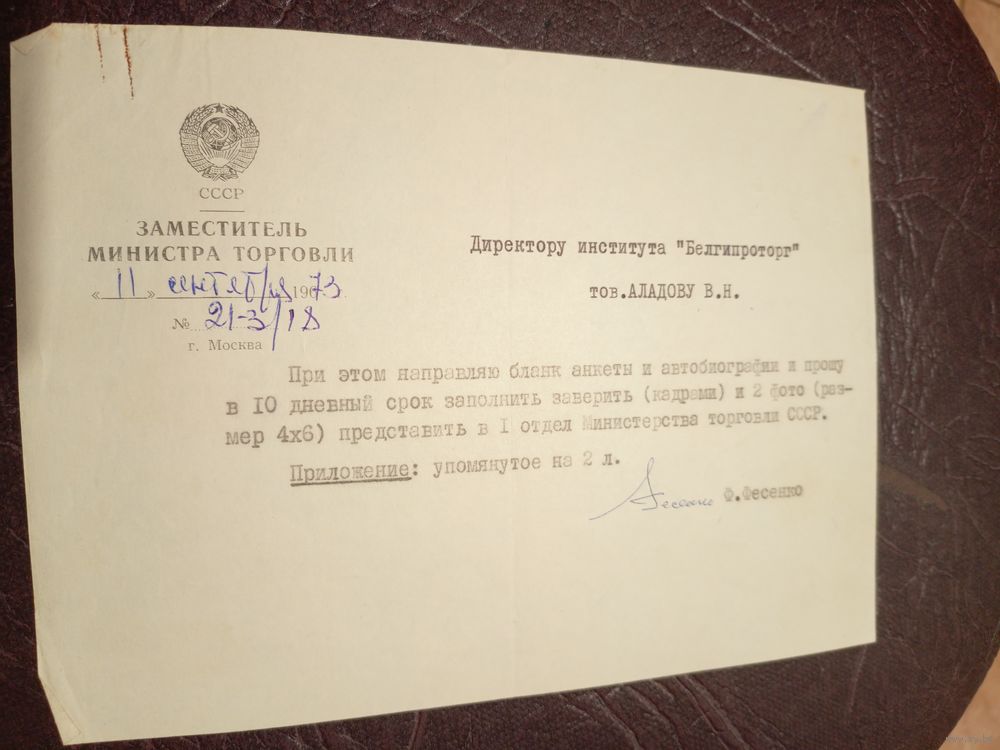 СССР
ЗАМЕСТИТЕЛЬ
МИНИСТРА ТОРГОВЛИ
«11» сентября 1973
№ 21-3/18
г. Москва
Директору института "Белгипроторг"
тов.АЛАДОВУ В.Н.
При этом направляю бланк анкеты и автобиографии и прошу
в 10 дневный срок заполнить заверить (кадрами) и 2 фото (раз-
мер 4х6) представить в I отдел Министерства торговли СССР.
Приложение: упомянутое на 2 л.
Фесенко Ф.Фесенко